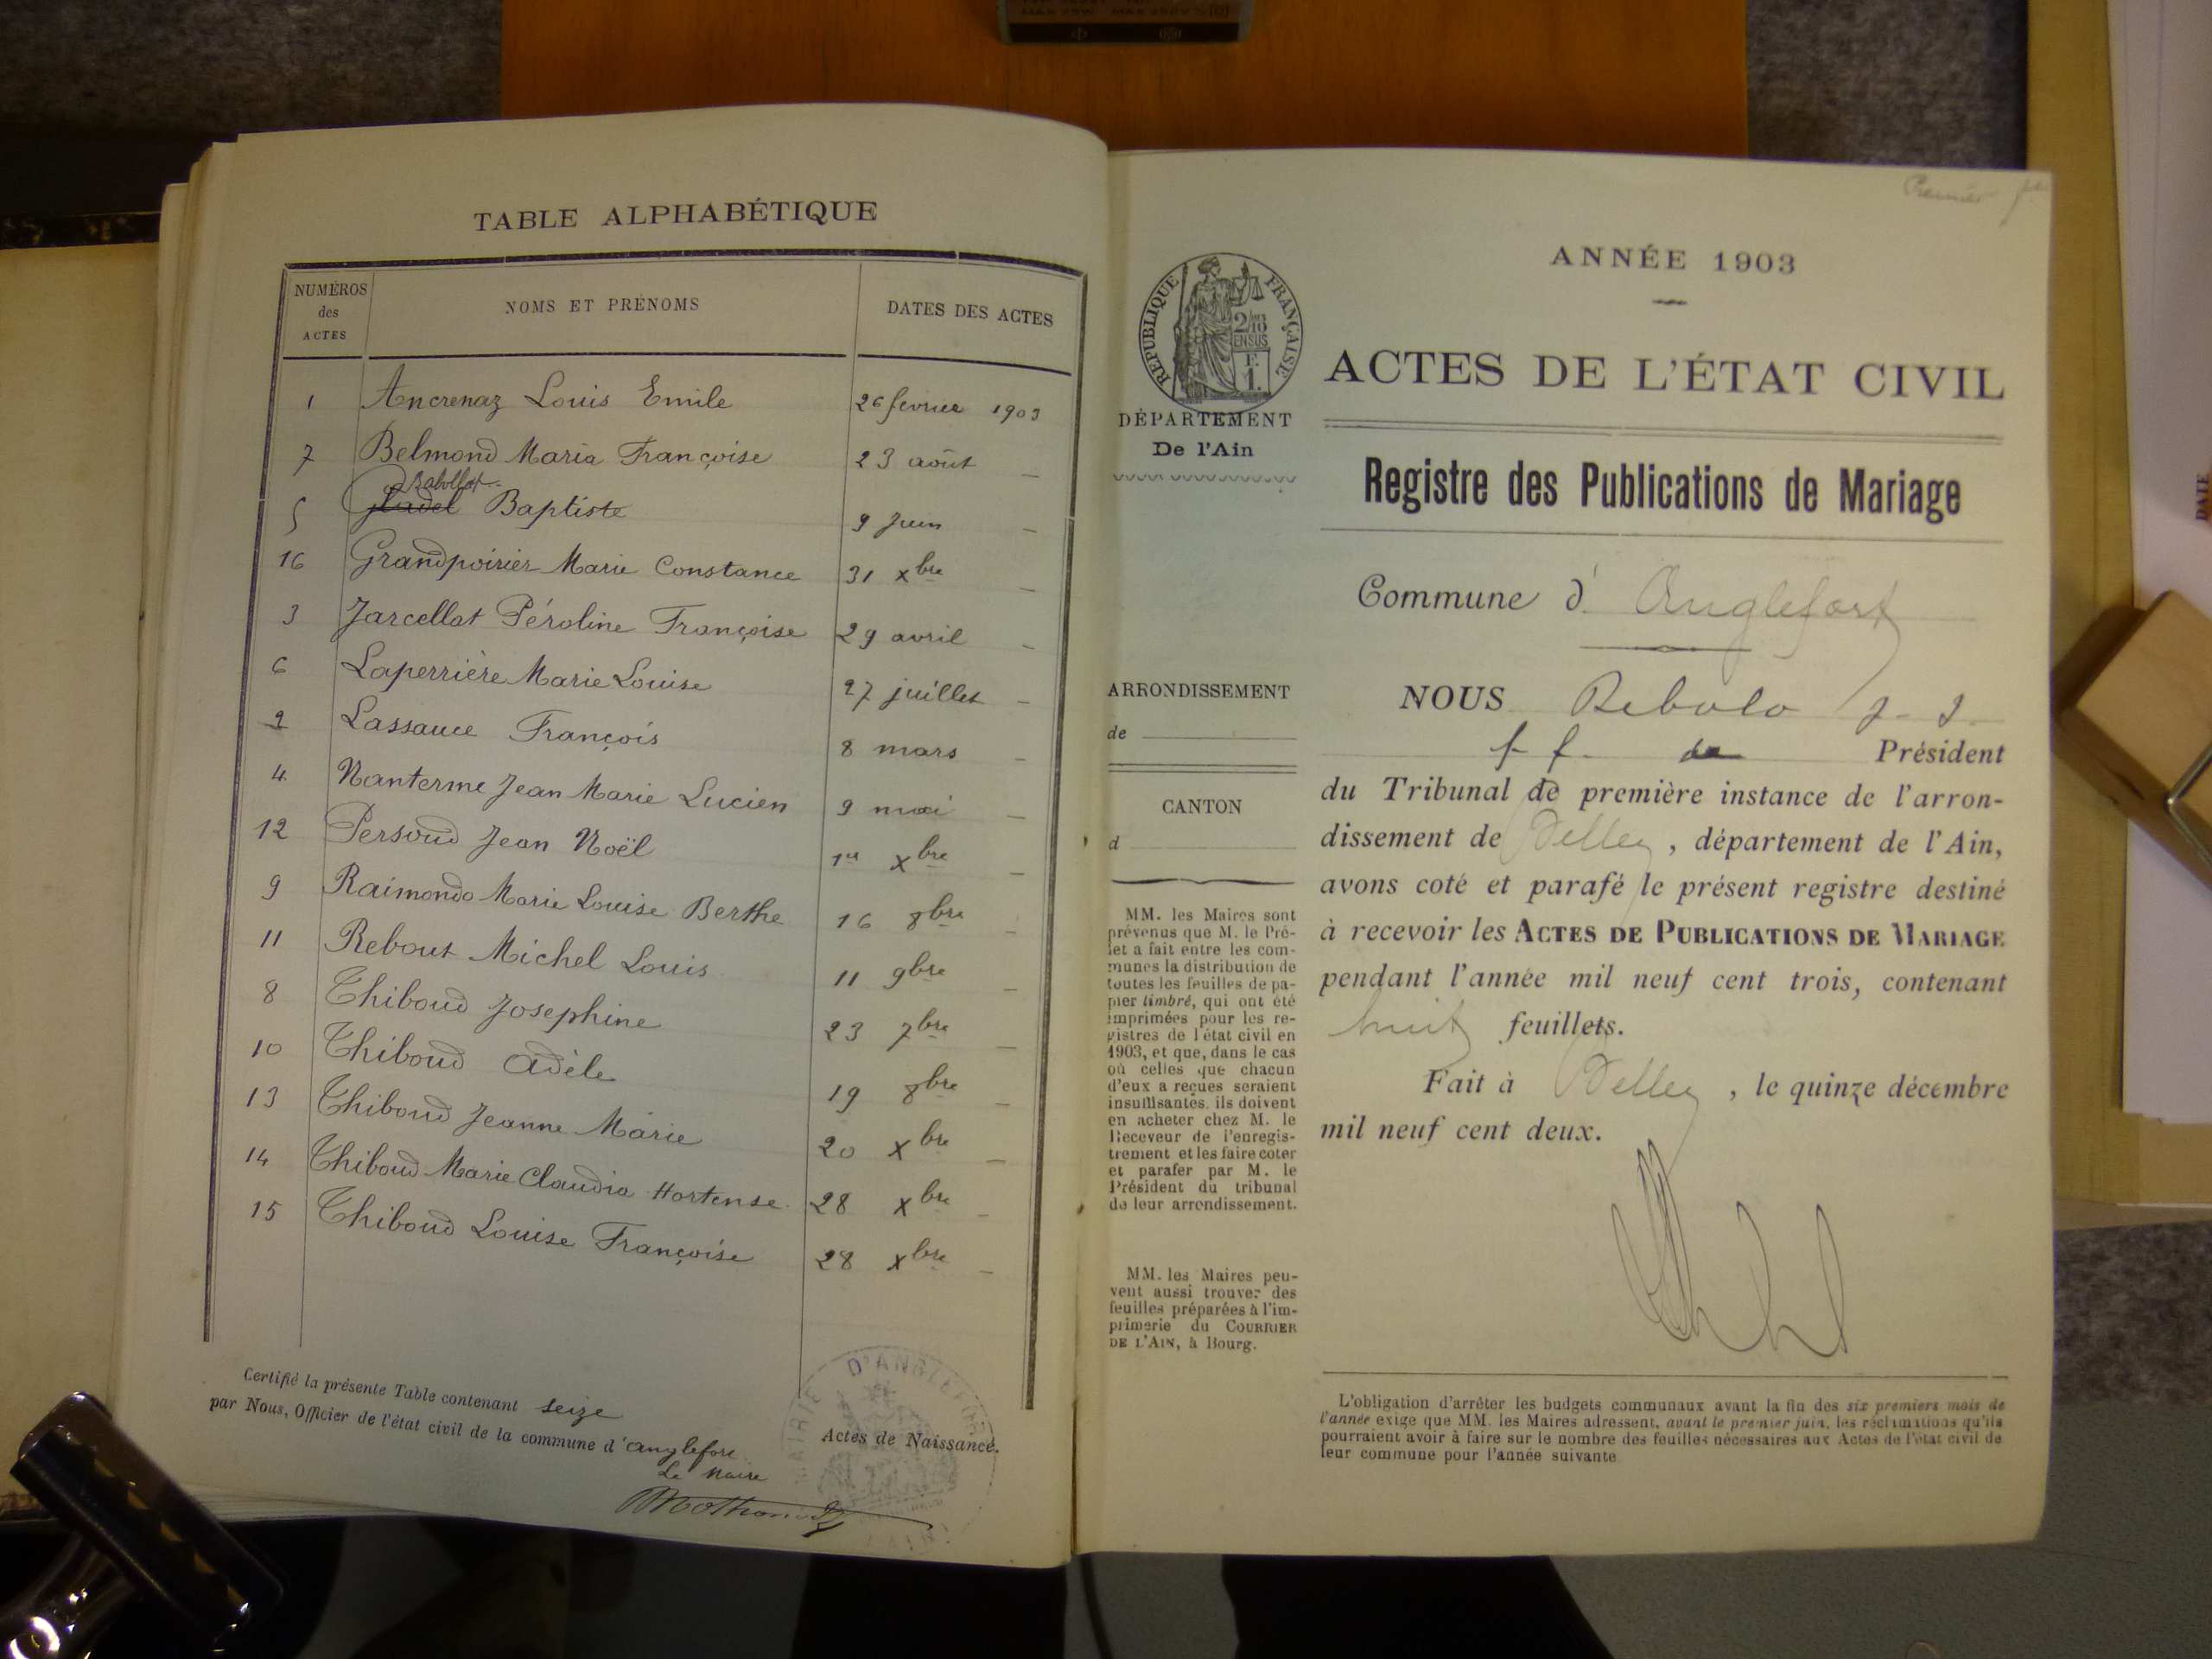 TABLE ALPHABÉTIQUE
NUMÉROS des ACTES
NOMS ET PRÉNOMS
DATES DES ACTES
1 Ancrenaz Louis Emile 26 fevrier 1903
7 Belmond Maria Françoise 23 août —
Rabollat
5 Baptiste 9 Juin —
16 Grandpoirier Marie Constance 31 xbre —
3 Jarcellat Péroline Françoise 29 avril —
6 Laperrière Marie Louise 27 juillet —
2 Lassauce François 8 mars —
4 Nanterme Jean Marie Lucien 9 mai —
12 Persoud Jean Noël 1er xbre —
9 Raimondo Marie Louise Berthe 16 8bre —
11 Rebout Michel Louis 11 9bre —
8 Thiboud Josephine 23 7bre —
10 Thiboud Adèle 19 8bre —
13 Thiboud Jeanne Marie 20 xbre —
14 Thiboud Marie Claudia Hortense 28 xbre —
15 Thiboud Louise Françoise 28 xbre —
Certifié la présente Table contenant seize Actes de Naissance.
par Nous, Officier de l'état civil de la commune d'Anglefort
Le Maire
MAIRIE D'ANGLEFORT
Premier
ANNÉE 1903
RÉPUBLIQUE FRANÇAISE
2/10 EN SUS
F. 1.
ACTES DE L'ÉTAT CIVIL
DÉPARTEMENT
De l'Ain
Registre des Publications de Mariage
Commune d'Anglefort
ARRONDISSEMENT
de
CANTON
d
NOUS Rebolo J. S.
f f de Président
du Tribunal de première instance de l'arron-
dissement de Belley, département de l'Ain,
avons coté et parafé le présent registre destiné
à recevoir les ACTES DE PUBLICATIONS DE MARIAGE
pendant l'année mil neuf cent trois, contenant
huit feuillets.
Fait à Belley, le quinze décembre
mil neuf cent deux.
MM. les Maires sont
prévenus que M. le Pré-
fet a fait entre les com-
munes la distribution de
toutes les feuilles de pa-
pier timbré, qui ont été
imprimées pour les re-
gistres de l'état civil en
1903, et que, dans le cas
où celles que chacun
d'eux a reçues seraient
insuffisantes, ils doivent
en acheter chez M. le
Receveur de l'enregis-
trement et les faire coter
et parafer par M. le
Président du tribunal
de leur arrondissement.
MM. les Maires peu-
vent aussi trouver des
feuilles préparées à l'im-
primerie du COURRIER
DE L'AIN, à Bourg.
L'obligation d'arrêter les budgets communaux avant la fin des six premiers mois de
l'année exige que MM. les Maires adressent, avant le premier juin, les réclamations qu'ils
pourraient avoir à faire sur le nombre des feuilles nécessaires aux Actes de l'état civil de
leur commune pour l'année suivante.
DATE